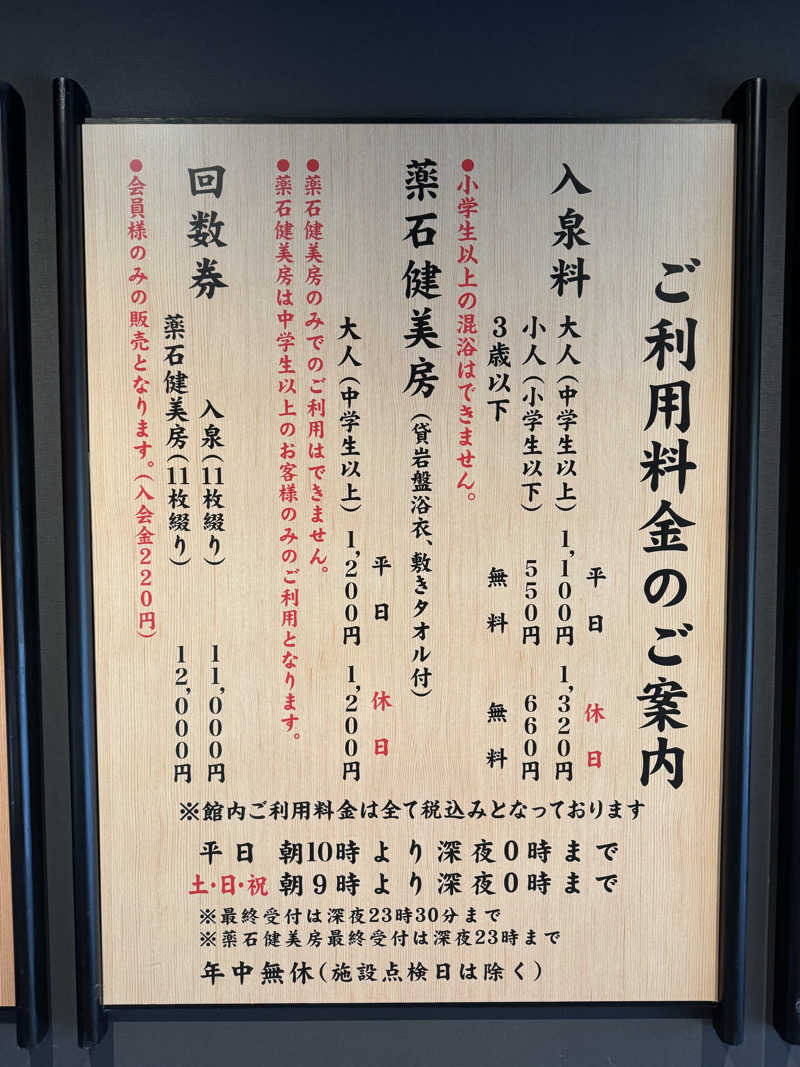 ご利用料金のご案内
平日 休日
入泉料 大人(中学生以上) 1,100円 1,320円
小人(小学生以下) 550円 660円
3歳以下 無料 無料
●小学生以上の混浴はできません。
薬石健美房(貸岩盤浴衣、敷きタオル付)
平日 休日
大人(中学生以上) 1,200円 1,200円
●薬石健美房のみでのご利用はできません。
●薬石健美房は中学生以上のお客様のみのご利用となります。
回数券 入泉(11枚綴り) 11,000円
薬石健美房(11枚綴り) 12,000円
●会員様のみの販売となります。(入会金220円)
※館内ご利用料金は全て税込みとなっております
平日 朝10時より深夜0時まで
土・日・祝 朝9時より深夜0時まで
※最終受付は深夜23時30分まで
※薬石健美房最終受付は深夜23時まで
年中無休(施設点検日は除く)